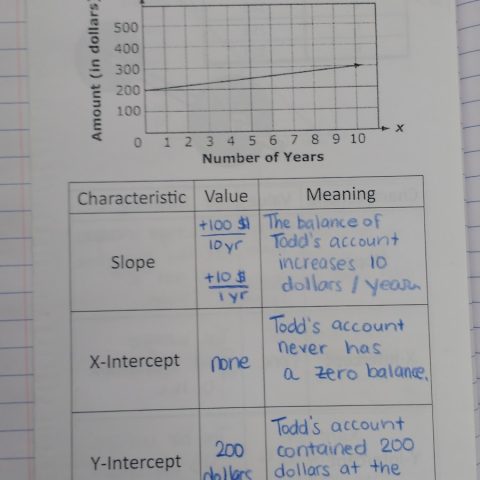 Amount (in dollars)
500
400
300
200
100
0 1 2 3 4 5 6 7 8 9 10 x
Number of Years
Characteristic Value Meaning
Slope
+100 $
10 yr
+10 $
1 yr
The balance of
Todd's account
increases 10
dollars / year.
X-Intercept
none
Todd's account
never has
a zero balance.
Y-Intercept
200
dollars
Todd's account
contained 200
dollars at the